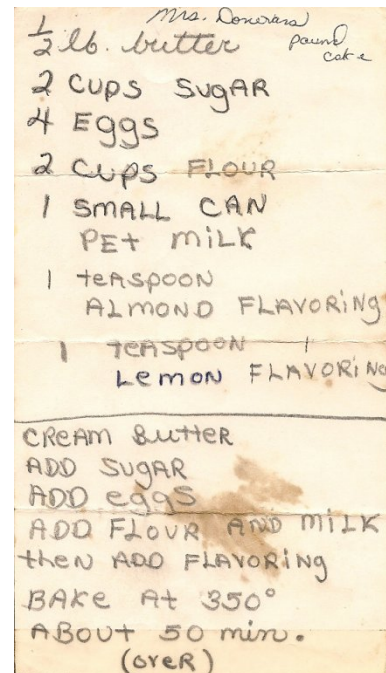 Mrs. Donerans
pound
cake
1/2 lb. butter
2 CUPS SUGAR
4 EGGS
2 CUPS FLOUR
1 SMALL CAN
PET MILK
1 teASPOON
ALMOND FLAVORING
1 teASPOON
LEMON FLAVORING
CREAM BUtteR
ADD SUGAR
ADD eggS
ADD FLOUR AND MILK
then ADD FLAVORING
BAKe At 350°
ABOUt 50 min.
(oveR)